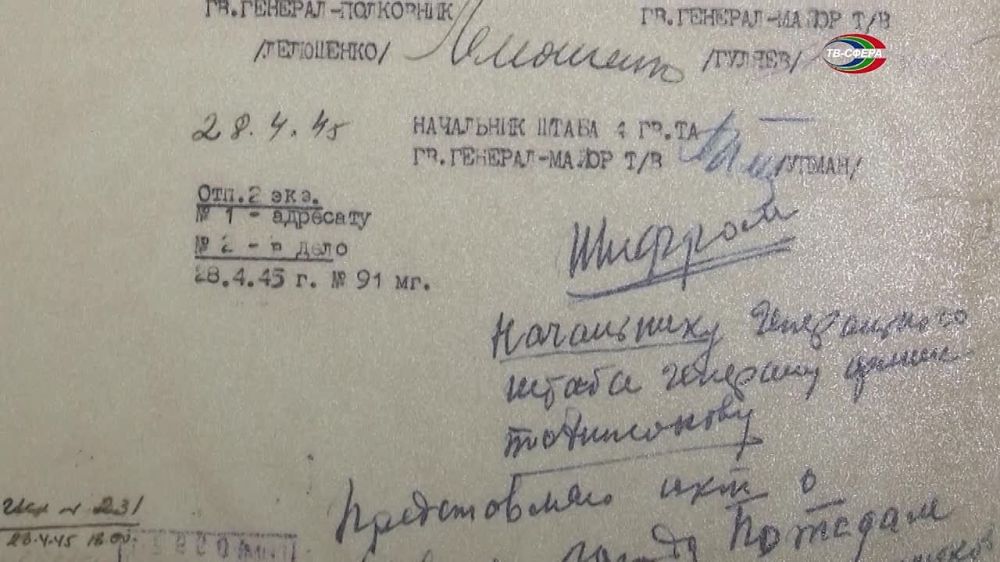 ГВ.ГЕНЕРАЛ-ПОЛКОВНИК ГВ.ГЕНЕРАЛ-МАЙОР Т/В
/ЛЕЛЮШЕНКО/ /ГУЛЯЕВ/
ТВ-СФЕРА
28.4.45 НАЧАЛЬНИК ШТАБА 4 ГВ.ТА
ГВ.ГЕНЕРАЛ-МАЙОР Т/В /УПМАН/
Отп.2 экз.
№ 1 - адресату
№ 2 - в дело
28.4.45 г. № 91 мг.
Шифром
Начальнику Генерального
штаба генералу армии
т. Антонову
Представляю акт о
города Потсдам
231
28.4.45 18.00